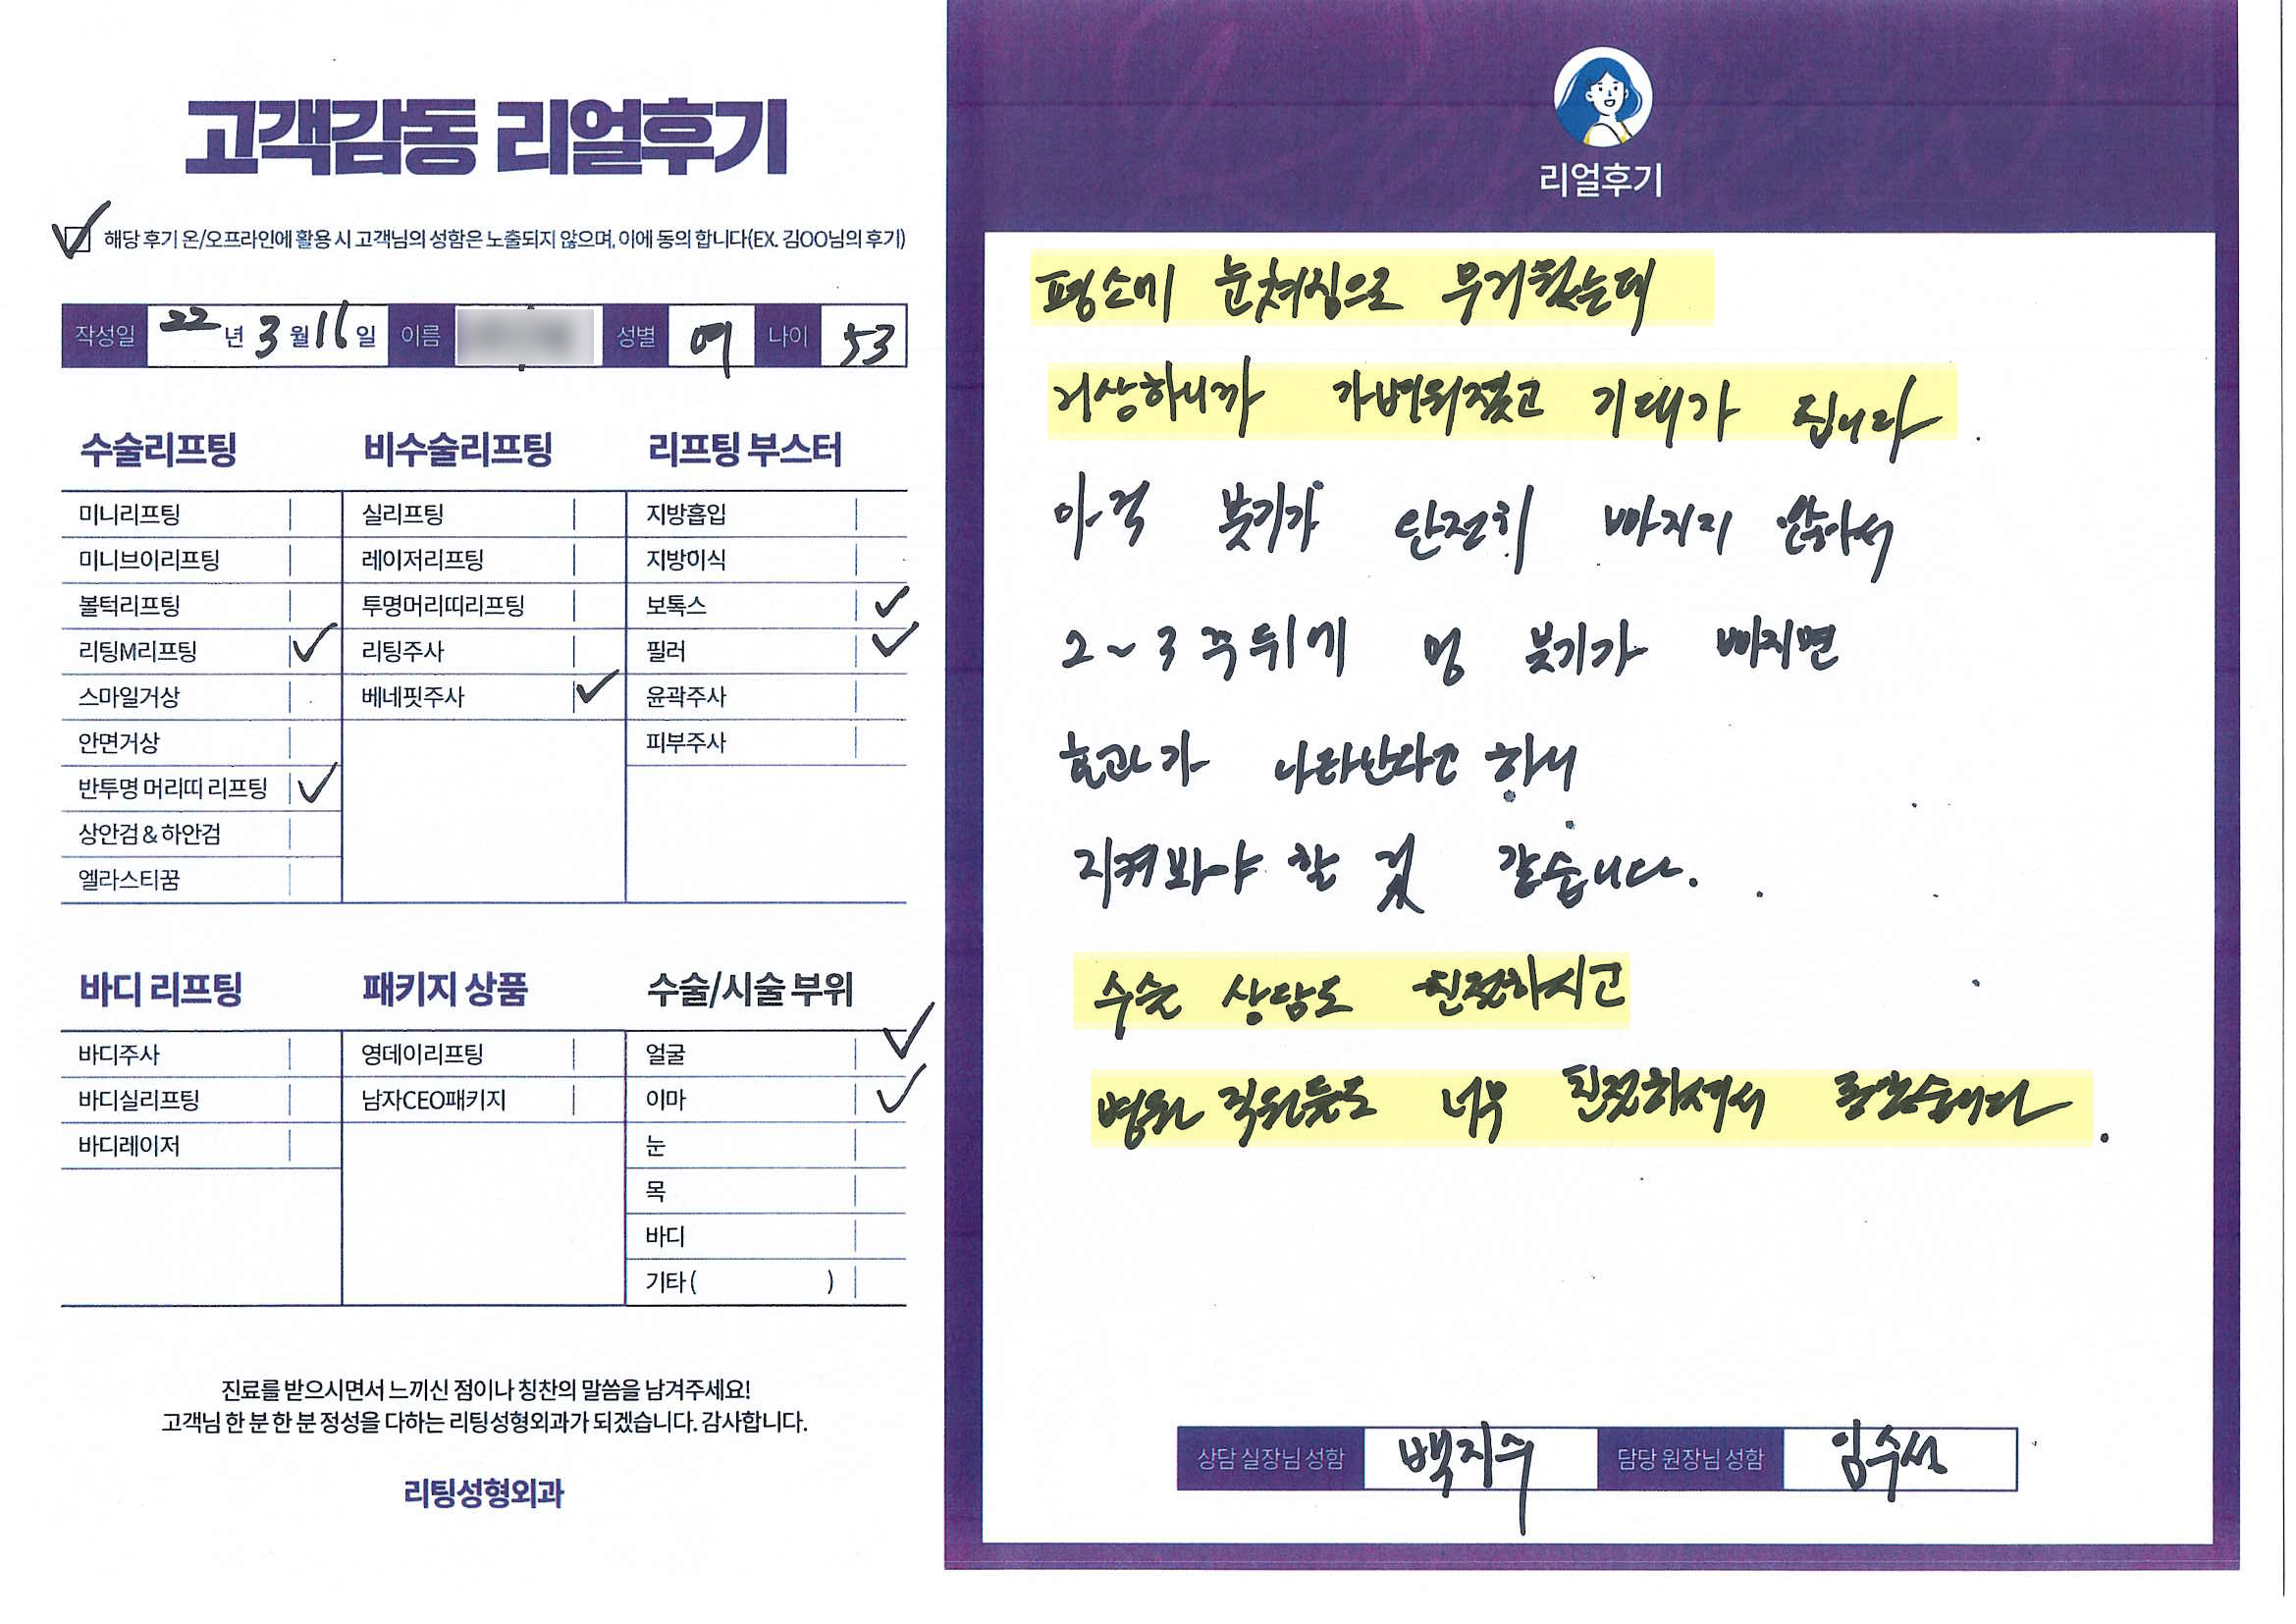 고객감동 리얼후기
해당 후기 온/오프라인에 활용 시 고객님의 성함은 노출되지 않으며, 이에 동의 합니다(EX. 김OO님의 후기)
작성일 22년 3월 16일 이름 성별 여 나이 53
수술리프팅
미니리프팅
미니브이리프팅
볼턱리프팅
리팅M리프팅
스마일거상
안면거상
반투명 머리띠 리프팅
상안검 & 하안검
엘라스티꿈
비수술리프팅
실리프팅
레이저리프팅
투명머리띠리프팅
리팅주사
베네핏주사
리프팅 부스터
지방흡입
지방이식
보톡스
필러
윤곽주사
피부주사
바디 리프팅
바디주사
바디실리프팅
바디레이저
패키지 상품
영데이리프팅
남자CEO패키지
수술/시술 부위
얼굴
이마
눈
목
바디
기타 ( )
진료를 받으시면서 느끼신 점이나 칭찬의 말씀을 남겨주세요!
고객님 한 분 한 분 정성을 다하는 리팅성형외과가 되겠습니다. 감사합니다.
리팅성형외과
리얼후기
평소에 눈쳐짐으로 무거웠는데
거상하니까 가벼워졌고 기대가 됩니다.
아직 붓기가 완전히 빠지지 않아서
2~3주뒤에 멍 붓기가 빠지면
효과가 나타난다고 하니
지켜봐야 할 것 같습니다.
수술 상담도 친절하시고
병원 직원들도 너무 친절하셔서 좋았습니다.
상담 실장님 성함 백지수 담당 원장님 성함 임수성